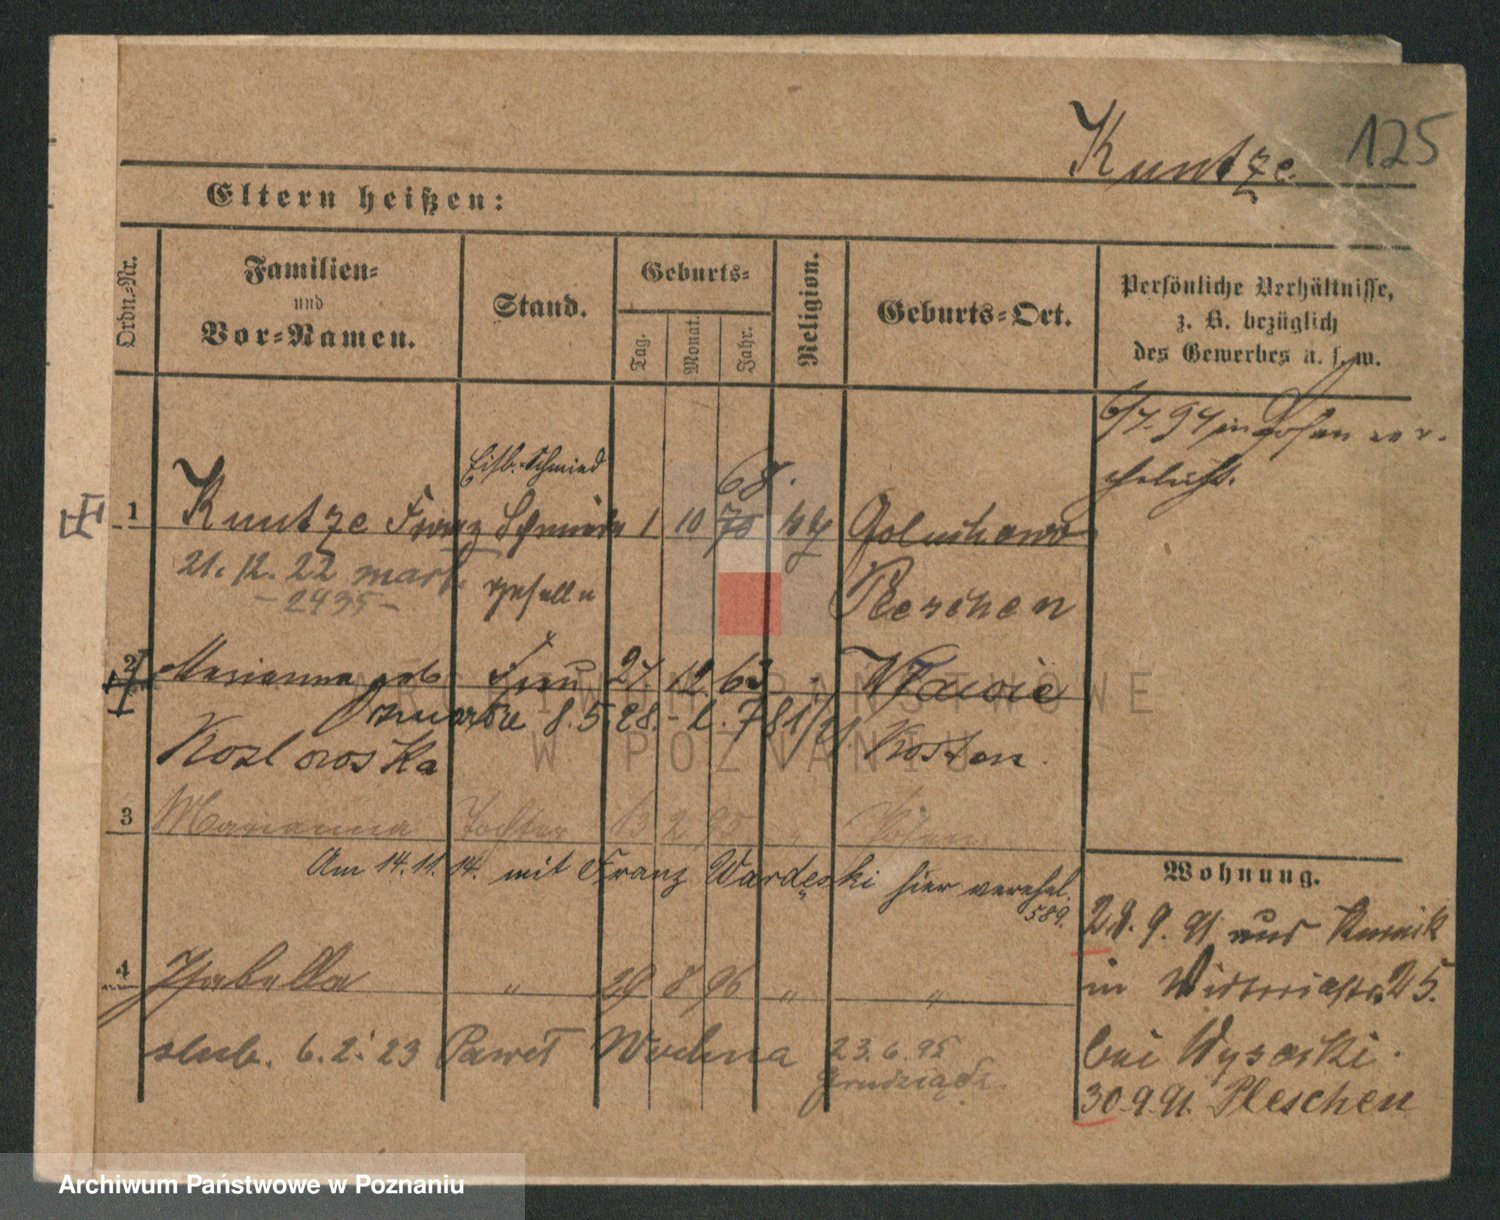 Kuntze
125
Eltern heißen:
Ordn.-Nr.
Familien-
und
Vor-Namen.
Stand.
Geburts-
Tag.
Monat.
Jahr.
Religion.
Geburts-Ort.
Persönliche Verhältnisse,
z. B. bezüglich
des Gewerbes u. s. w.
6/7. 94 in Posen ver-
ehelicht.
Eisb.-Schmied
68.
1 Kuntze Franz Schmiede 1 10 70 Goluchowo
21. 12. 22 geselle Pleschen
- 2435 -
2 Marianna geb. Frau 27 12 63
zmarła 8.5.28.
Kozlowska Kosten.
3 Marianna Tochter 13 2 95 " Posen
Am 14.11.14. mit Franz Wardęski hier verehel.
589.
Wohnung.
28. 9. 91 aus Kurnik
in Victoriastr. 25.
bei Wysocki.
30.9.91. Pleschen
4 Isabella " 29 8 96 " "
ślub. 6. 2. 23 Paweł 23. 6. 95
Grudziądz.
ARCHIWUM PAŃSTWOWE
W POZNANIU
Archiwum Państwowe w Poznaniu